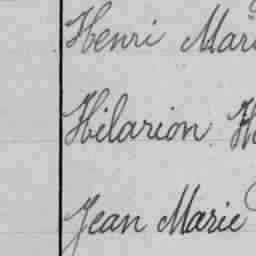 Henri Mari
Hilarion H
Jean Marie